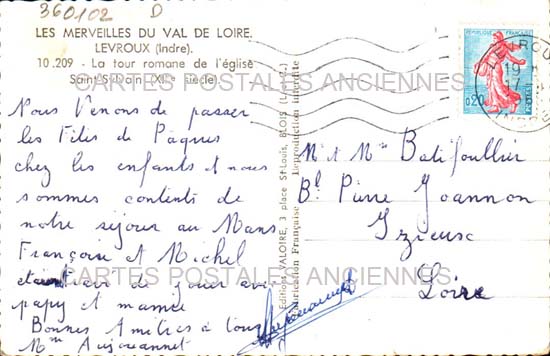 360102 D
LES MERVEILLES DU VAL DE LOIRE.
LEVROUX (Indre).
10.209 - La tour romane de l'église
Saint-Sylvain (XIIIe siècle).
Nous Venons de passer
les Fêtes de Pâques
chez les enfants et nous
sommes contents de
notre séjour au Mans
Françoise et Michel
de jouer avec
papy et mamie
Bonnes Amitiés à tous
Mme Aujouannet
Editions VALOIRE, 3 place St-Louis, BLOIS
Fabrication Française - Reproduction interdite
REPUBLIQUE FRANÇAISE
0,20
POSTES
LEVROUX
19 H
17
INDRE
Mr et Mme Batifoullier
Bd Pierre Joannon
Izieux
Loire
CARTES POSTALES ANCIENNES
CARTES POSTALES ANCIENNES